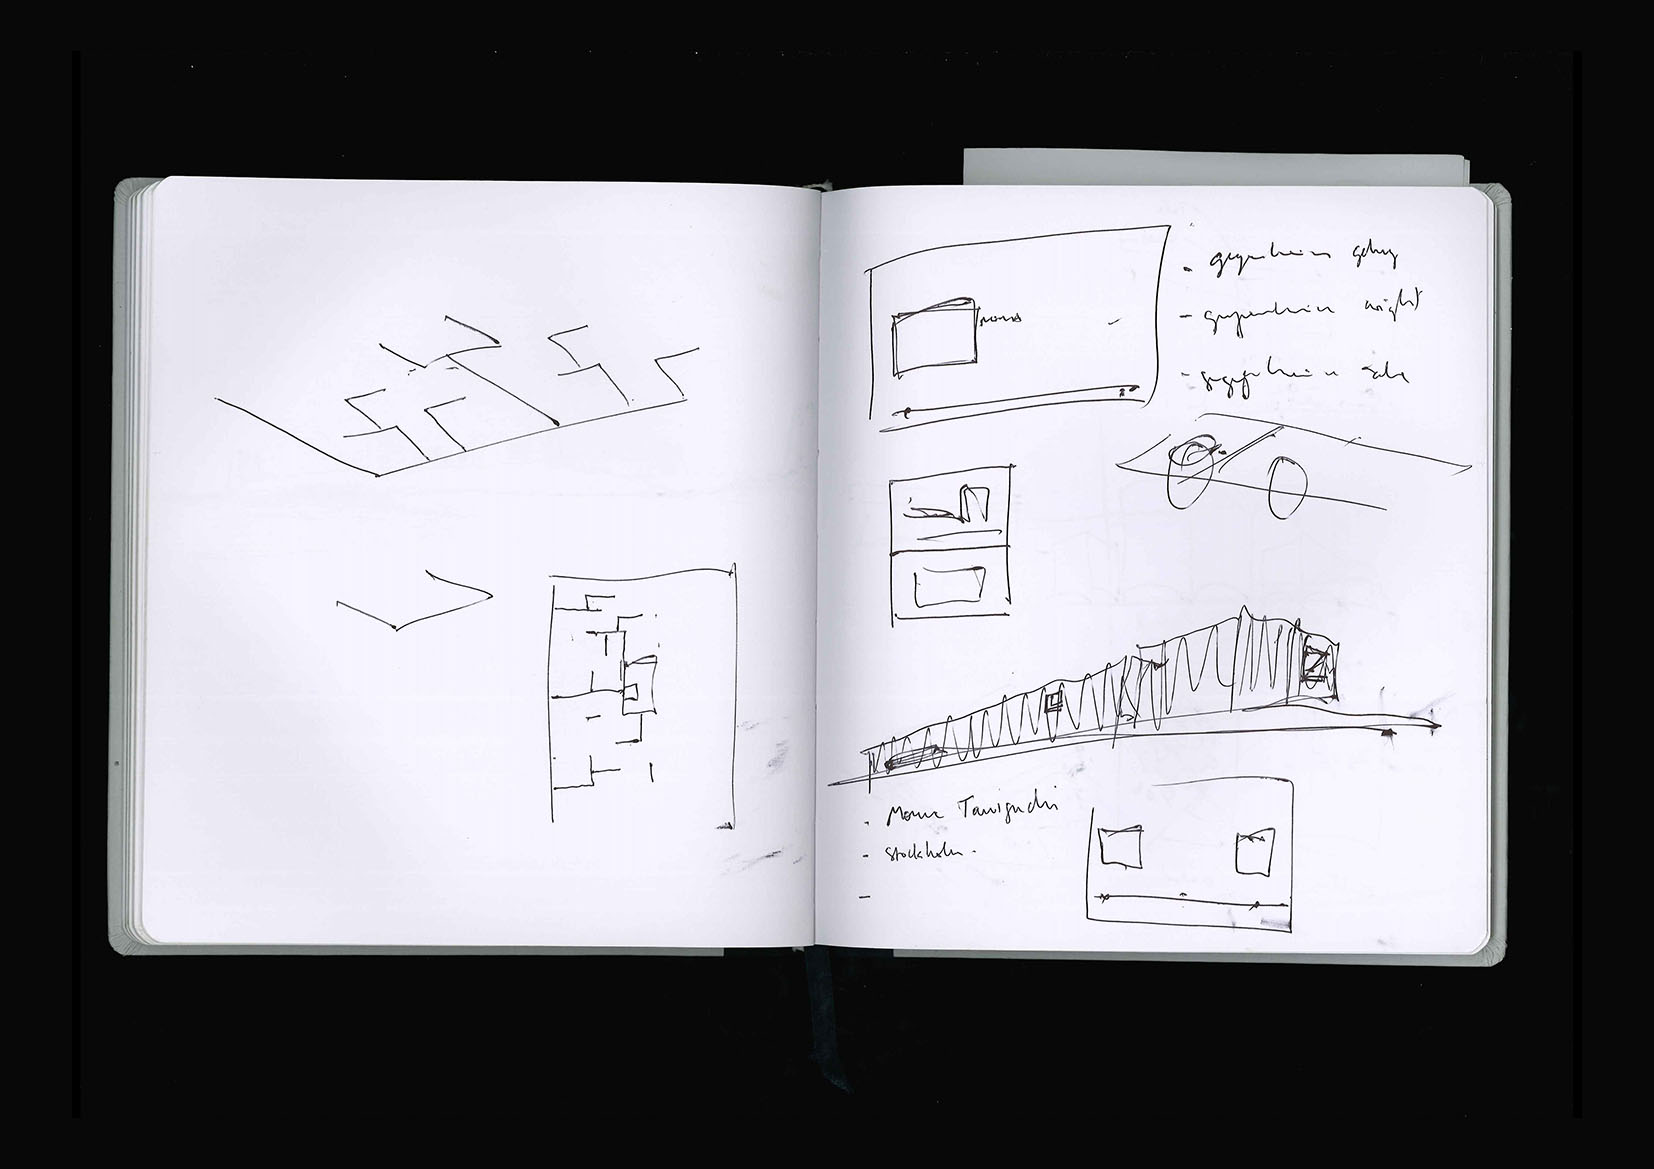 - guggenheim gehry
- guggenheim wright
- guggenheim
moma
. Moma Taniguchi
- Stockholm.
-